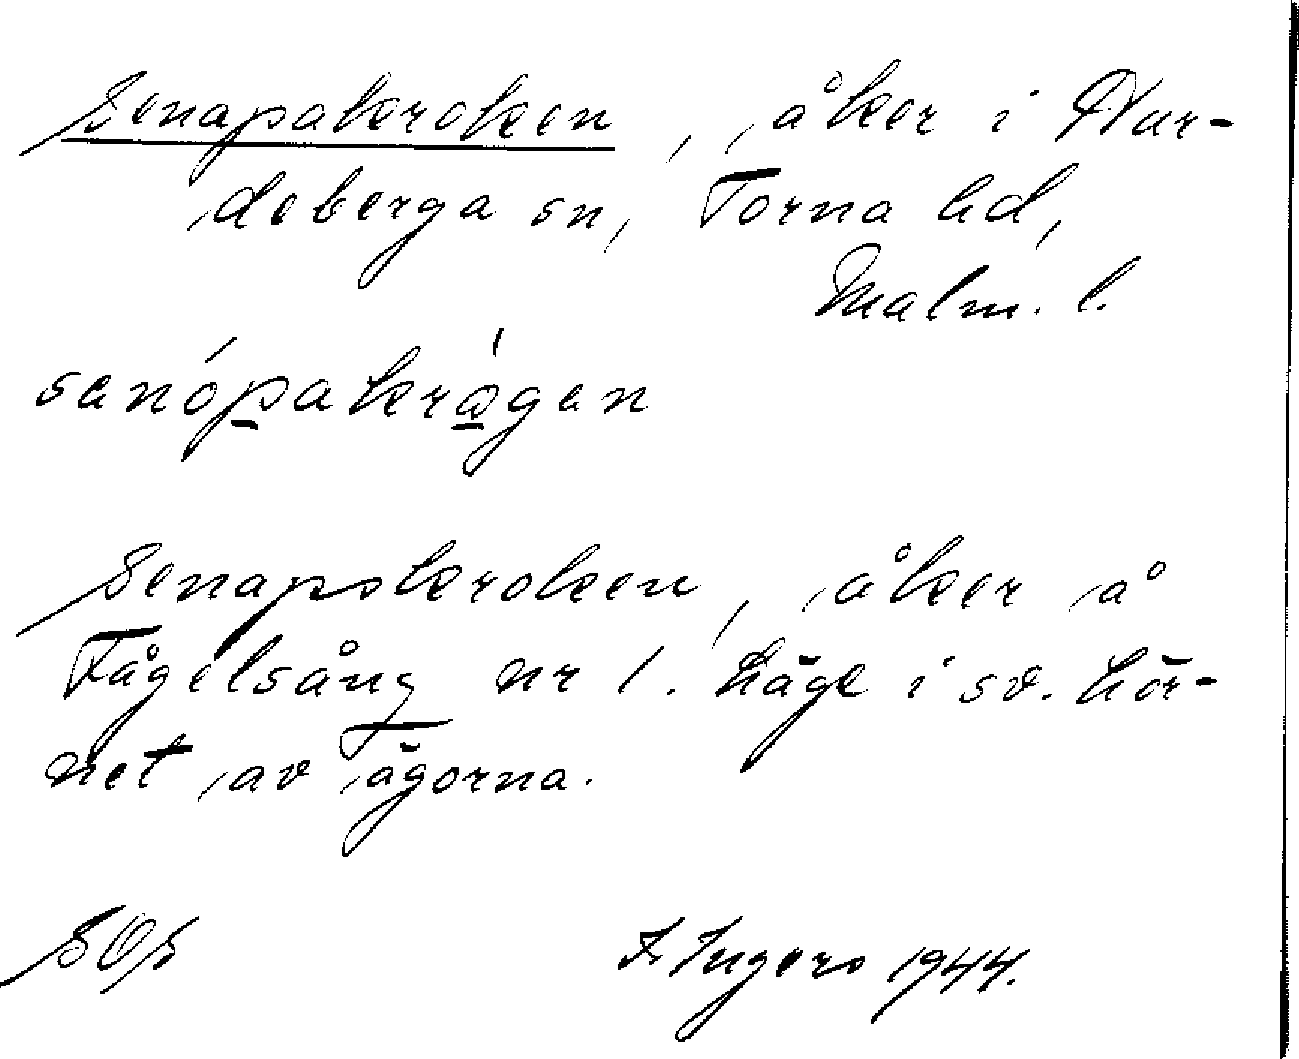 Senapakroken, åker i Har-
deberga sn, Torna hd,
Malm. l.
senópakrågen
Senapskroken, åker å
Fågelsång nr 1. Läge i sv. hör-
net av ägorna.
SOS I. Ingers 1944.